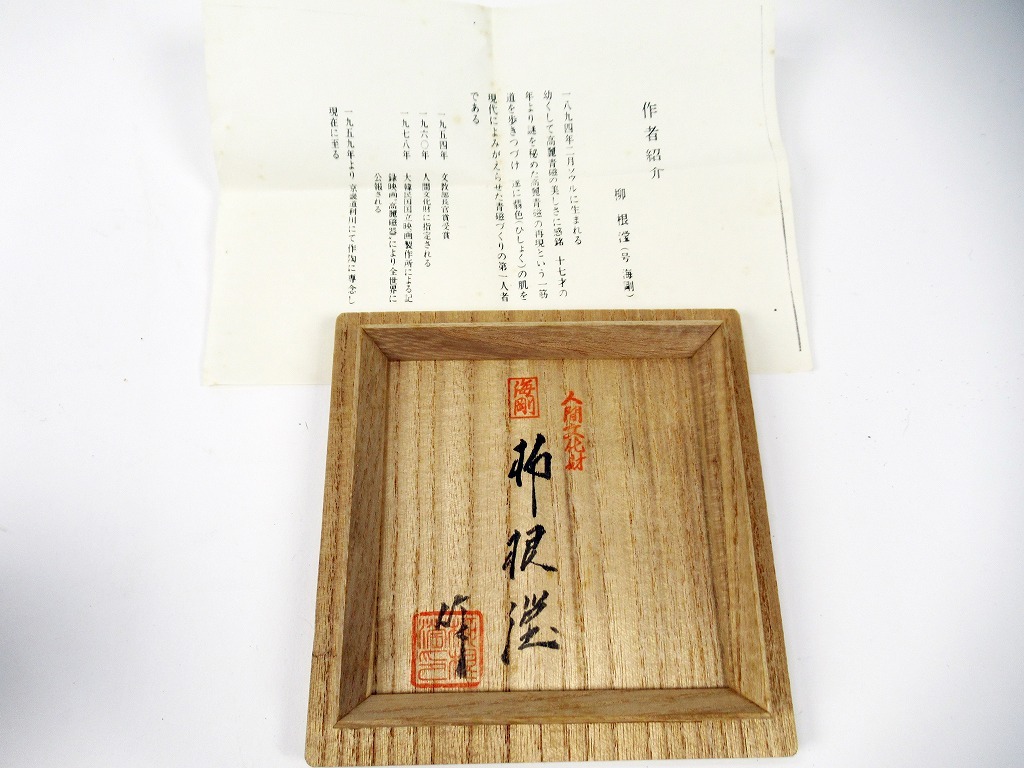 作者紹介
柳根瀅(号 海剛)
一八九四年二月ソウルに生まれる
幼くして高麗青磁の美しさに感銘 十七才の
年より謎を秘めた高麗青磁の再現という一筋
道を歩きつづけ 遂に翡色(ひしょく)の肌を
現代によみがえらせた青磁づくりの第一人者
である
一九五四年 文教部長官賞受賞
一九六〇年 人間文化財に指定される
一九七八年 大韓民国国立映画製作所による記
録映画「高麗磁器」により全世界に
公報される
一九五九年より 京畿道利川にて作陶に専念し
現在に至る
人間文化財
海剛
柳根瀅
作